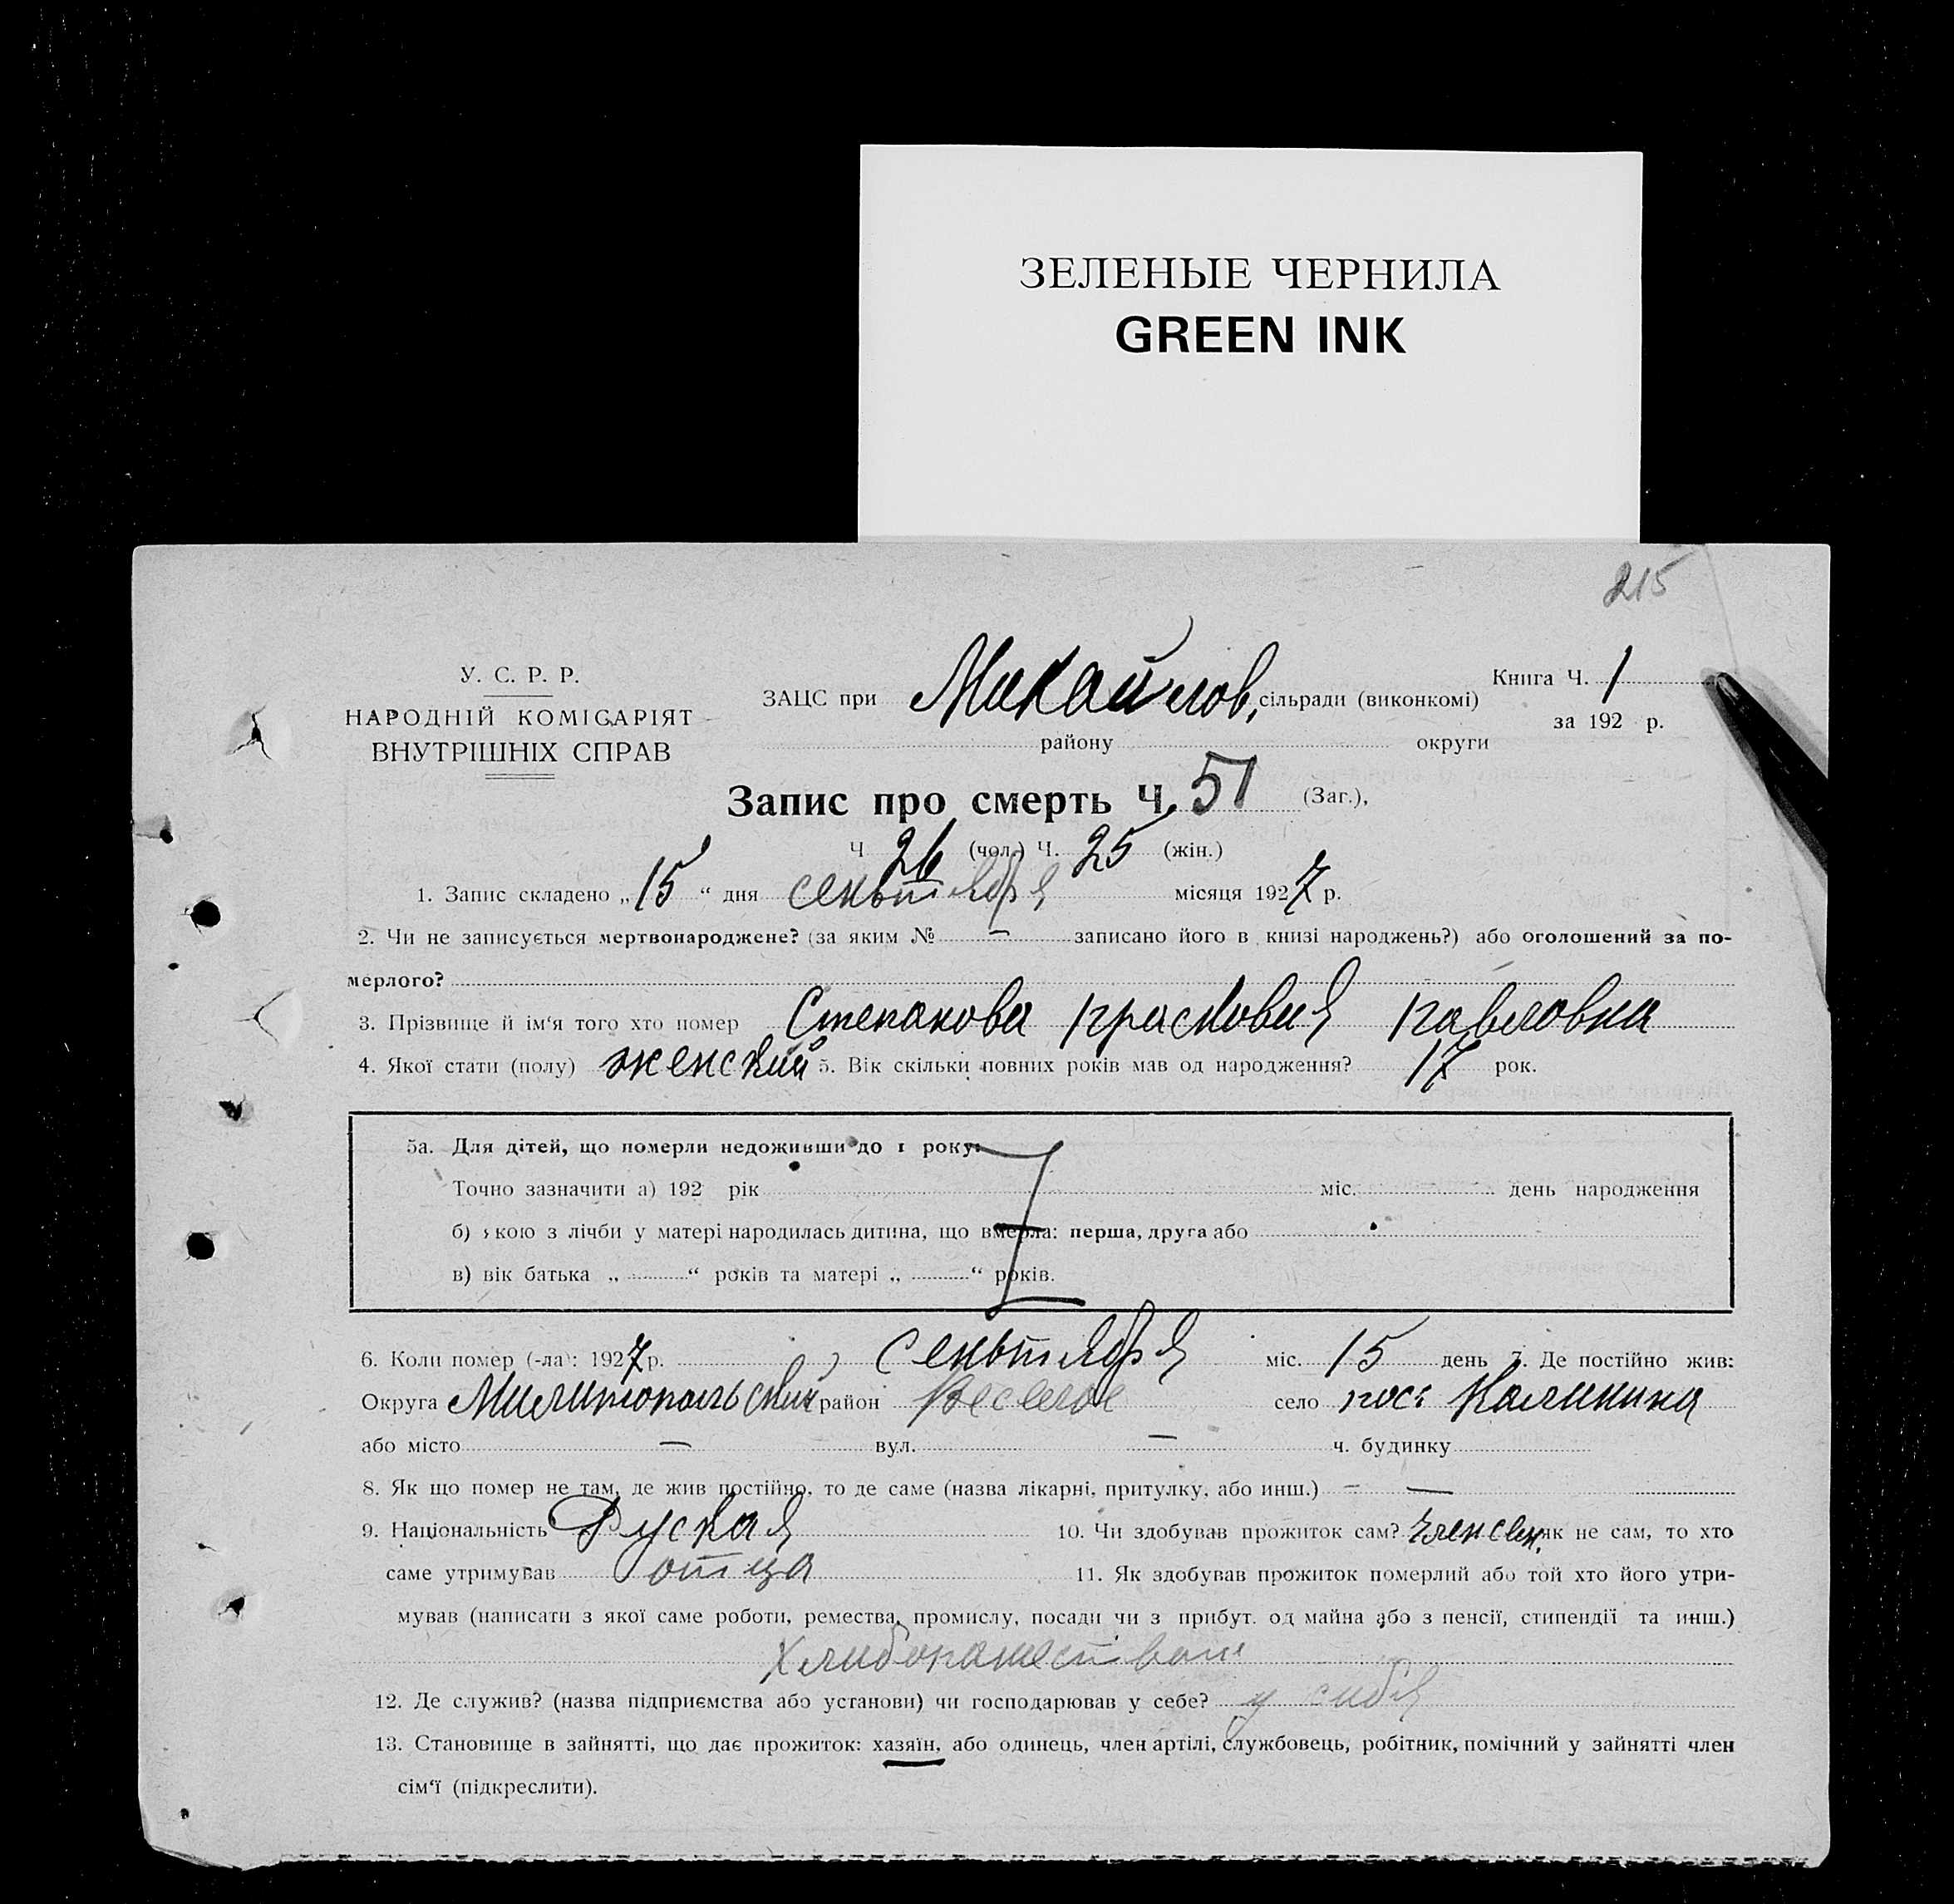 ЗЕЛЕНЫЕ ЧЕРНИЛА
GREEN INK
215
У. С. Р. Р.
НАРОДНІЙ КОМІСАРІЯТ
ВНУТРІШНІХ СПРАВ
ЗАЦС при Михайлов. сільради (виконкомі)
Книга Ч. 1
за 192 р.
району округи
Запис про смерть Ч. 51 (Заг.),
Ч 26 (чол.) Ч. 25 (жін.)
1. Запис складено „15“ дня сеньтября місяця 1927 р.
2. Чи не записується мертвонароджене? (за яким № — записано його в книзі народжень?) або оголошений за по-
мерлого?
3. Прізвище й ім'я того хто помер Степанова Прасковия Павловна
4. Якої стати (полу) женский 5. Вік скільки повних років мав од народження? 17 рок.
5а. Для дітей, що померли недоживши до 1 року:
Точно зазначити а) 192 рік міс. день народження
б) якою з лічби у матері народилась дитина, що вмерла: перша, друга або
в) вік батька „ “ років та матері „ “ років.
6. Коли помер (-ла): 1927 р. Сеньтября міс. 15 день 7. Де постійно жив:
Округа Милитопольский район Веселое село пос. Калинина
або місто — вул. — ч. будинку
8. Як що помер не там, де жив постійно, то де саме (назва лікарні, притулку, або инш.) — —
9. Національність Руская 10. Чи здобував прожиток сам? член сем. як не сам, то хто
саме утримував отца 11. Як здобував прожиток померлий або той хто його утри-
мував (написати з якої саме роботи, ремества, промислу, посади чи з прибут. од майна або з пенсії, стипендії та инш.)
12. Де служив? (назва підприємства або установи) чи господарював у себе? у сибя
13. Становище в зайнятті, що дає прожиток: хазяїн, або одинець, член артілі, службовець, робітник, помічний у зайнятті член
сім'ї (підкреслити).